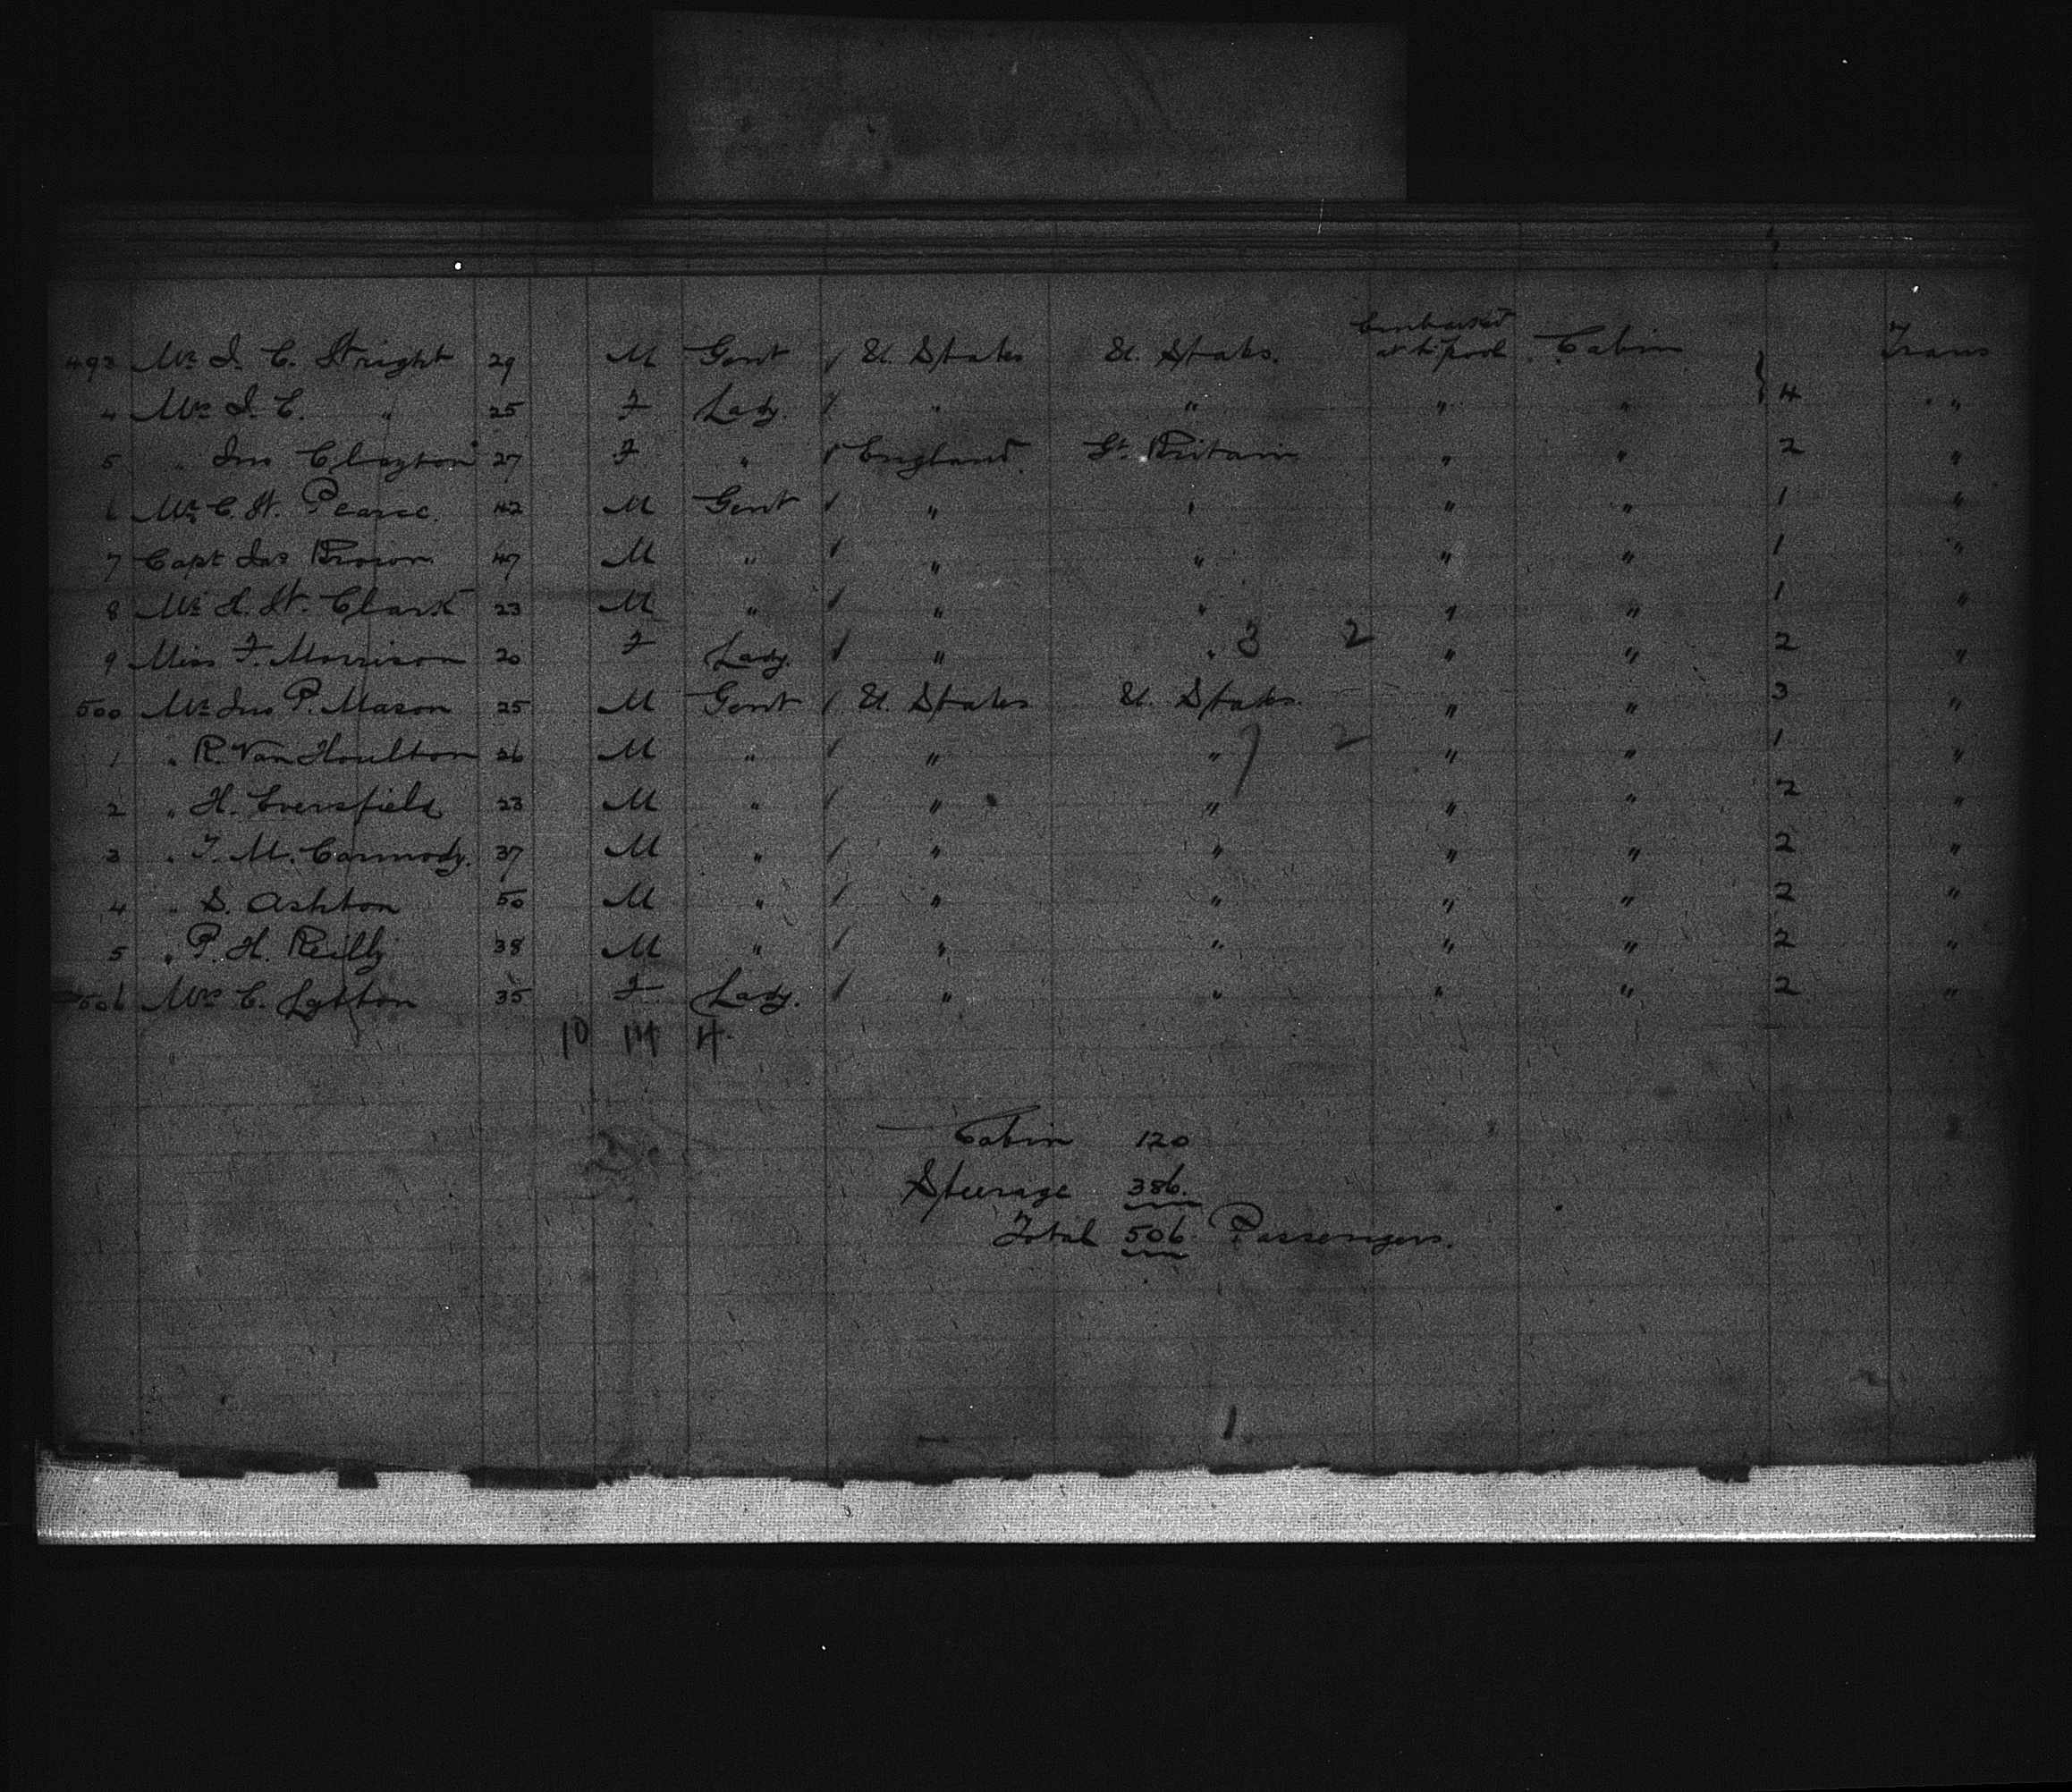 Embarked
493 Mr. I. C. Wright 29 M Gent / U. States U. States. at L'pool Cabin } Trans
4 Mrs. I. C. " 25 F Lady. / " " " " 4 "
5 " Jno Clayton 27 F " / England. Gt. Britain " " 2 "
6 Mr. C. W. Pearce. 42 M Gent / " " " " 1 "
7 Capt Jas Brown. 47 M " / " " " " 1 "
8 Mr. H. W. Clark 23 M " / " " " " 1 "
9 Miss F. Morrison 20 F Lady. / " " 3 2 " " 2 "
500 Mr. Jno P. Mason 25 M Gent / U. States U. States. " " 3 "
1 " R. Van Houlton 26 M " / " " 7 2 " " 1 "
2 " H. Eversfield 23 M " / " " " " 2 "
3 " T. M. Carmody. 37 M " / " " " " 2 "
4 " S. Ashton 50 M " / " " " " 2 "
5 " P. H. Reilly 38 M " / " " " " 2 "
506 Mrs C. Lytton 35 F Lady. / " " " " 2 "
10 14 4
Cabin 120
Steerage 386.
Total 506 Passengers.
1